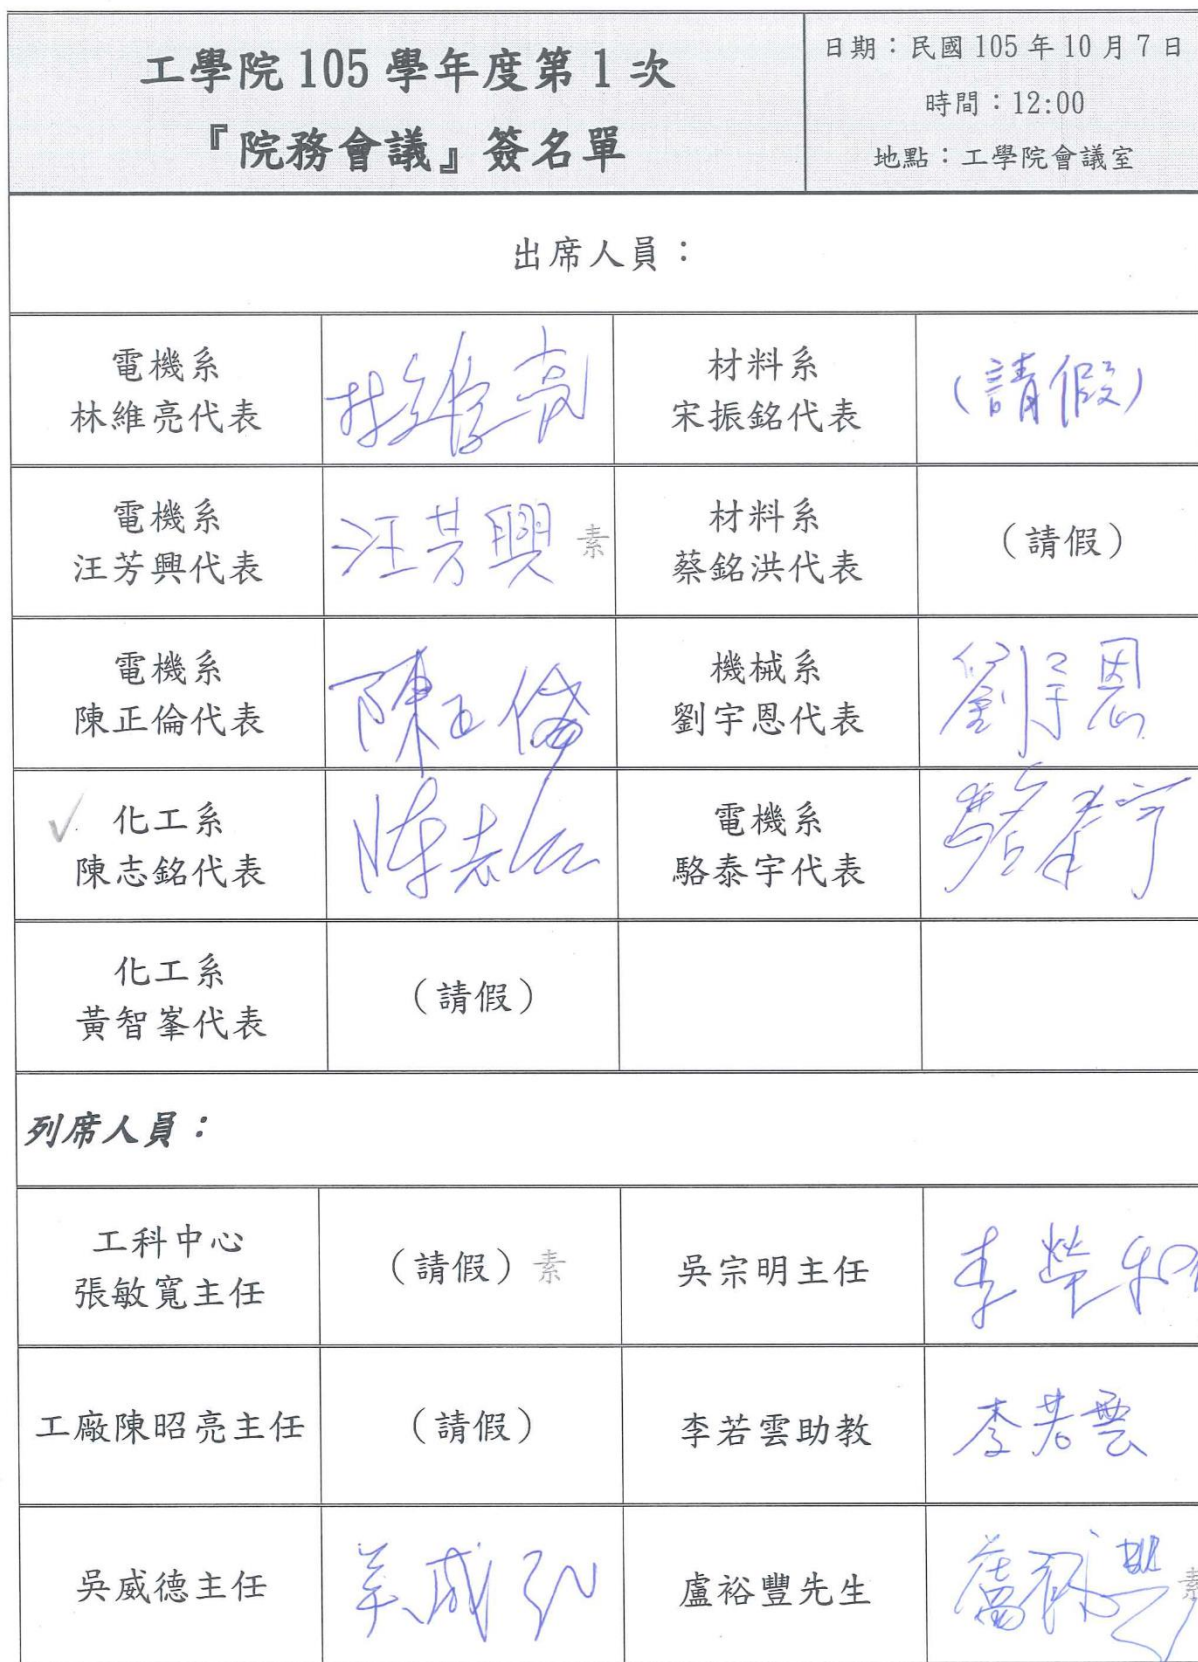 工學院 105 學年度第 1 次
『院務會議』簽名單
日期：民國 105 年 10 月 7 日
時間：12:00
地點：工學院會議室
出席人員：
電機系
林維亮代表
林維亮
材料系
宋振銘代表
(請假)
電機系
汪芳興代表
汪芳興 素
材料系
蔡銘洪代表
（請假）
電機系
陳正倫代表
陳正倫
機械系
劉宇恩代表
劉宇恩
✓ 化工系
陳志銘代表
陳志銘
電機系
駱泰宇代表
駱泰宇
化工系
黃智峯代表
（請假）
列席人員：
工科中心
張敏寬主任
（請假）素
吳宗明主任
李榮和
工廠陳昭亮主任
（請假）
李若雲助教
李若雲
吳威德主任
盧裕豐先生
盧裕豐 素